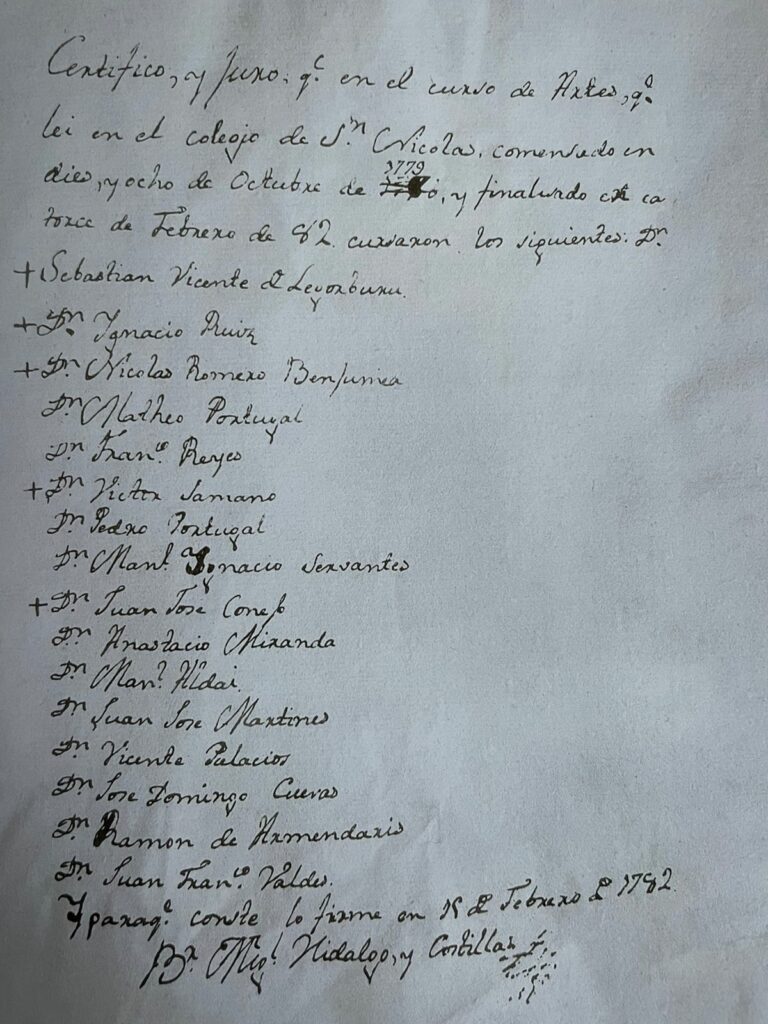 Certifico, y Juro, q.e en el curso de Artes, q.e
lei en el colegio de S.n Nicolas, comensado en
dies, y ocho de Octubre de 1779, y finalisado en ca
torce de Febrero de 82 cursaron los siguientes: D.n
+ Sebastian Vicente de Leyorburu.
+ D.n Ygnacio Ruiz
+ D.n Nicolas Romero Benjumea
D.n Matheo Portugal
D.n Fran.co Reyes
+ D.n Victor Samano
D.n Pedro Portugal
D.n Man.l Ygnacio Servantes
+ D.n Juan Jose Conejo
D.n Anastacio Miranda
D.n Man.l
D.n Juan Jose Martines
D.n Vicente Palacios
D.n Jose Domingo Cuevas
D.n Ramon de Armendaris
D.n Juan Fran.co Valdes.
Y paraq.e conste lo firme en 15 de Febrero de 1782
B.r Mig.l Hidalgo, y Costilla